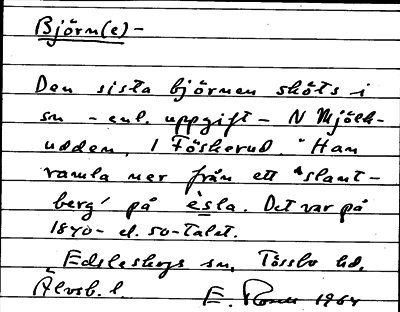 Björn(e) -
Den sista björnen sköts i
sn - enl. uppgift - N Mjölk-
udden, i Föskerud. "Han
ramla ner från ett "slant-
berg" på èsla. Det var på
1840- el. 50-talet.
Edsleskogs sn, Tössbo hd,
Älvsb. l.
E. 1964